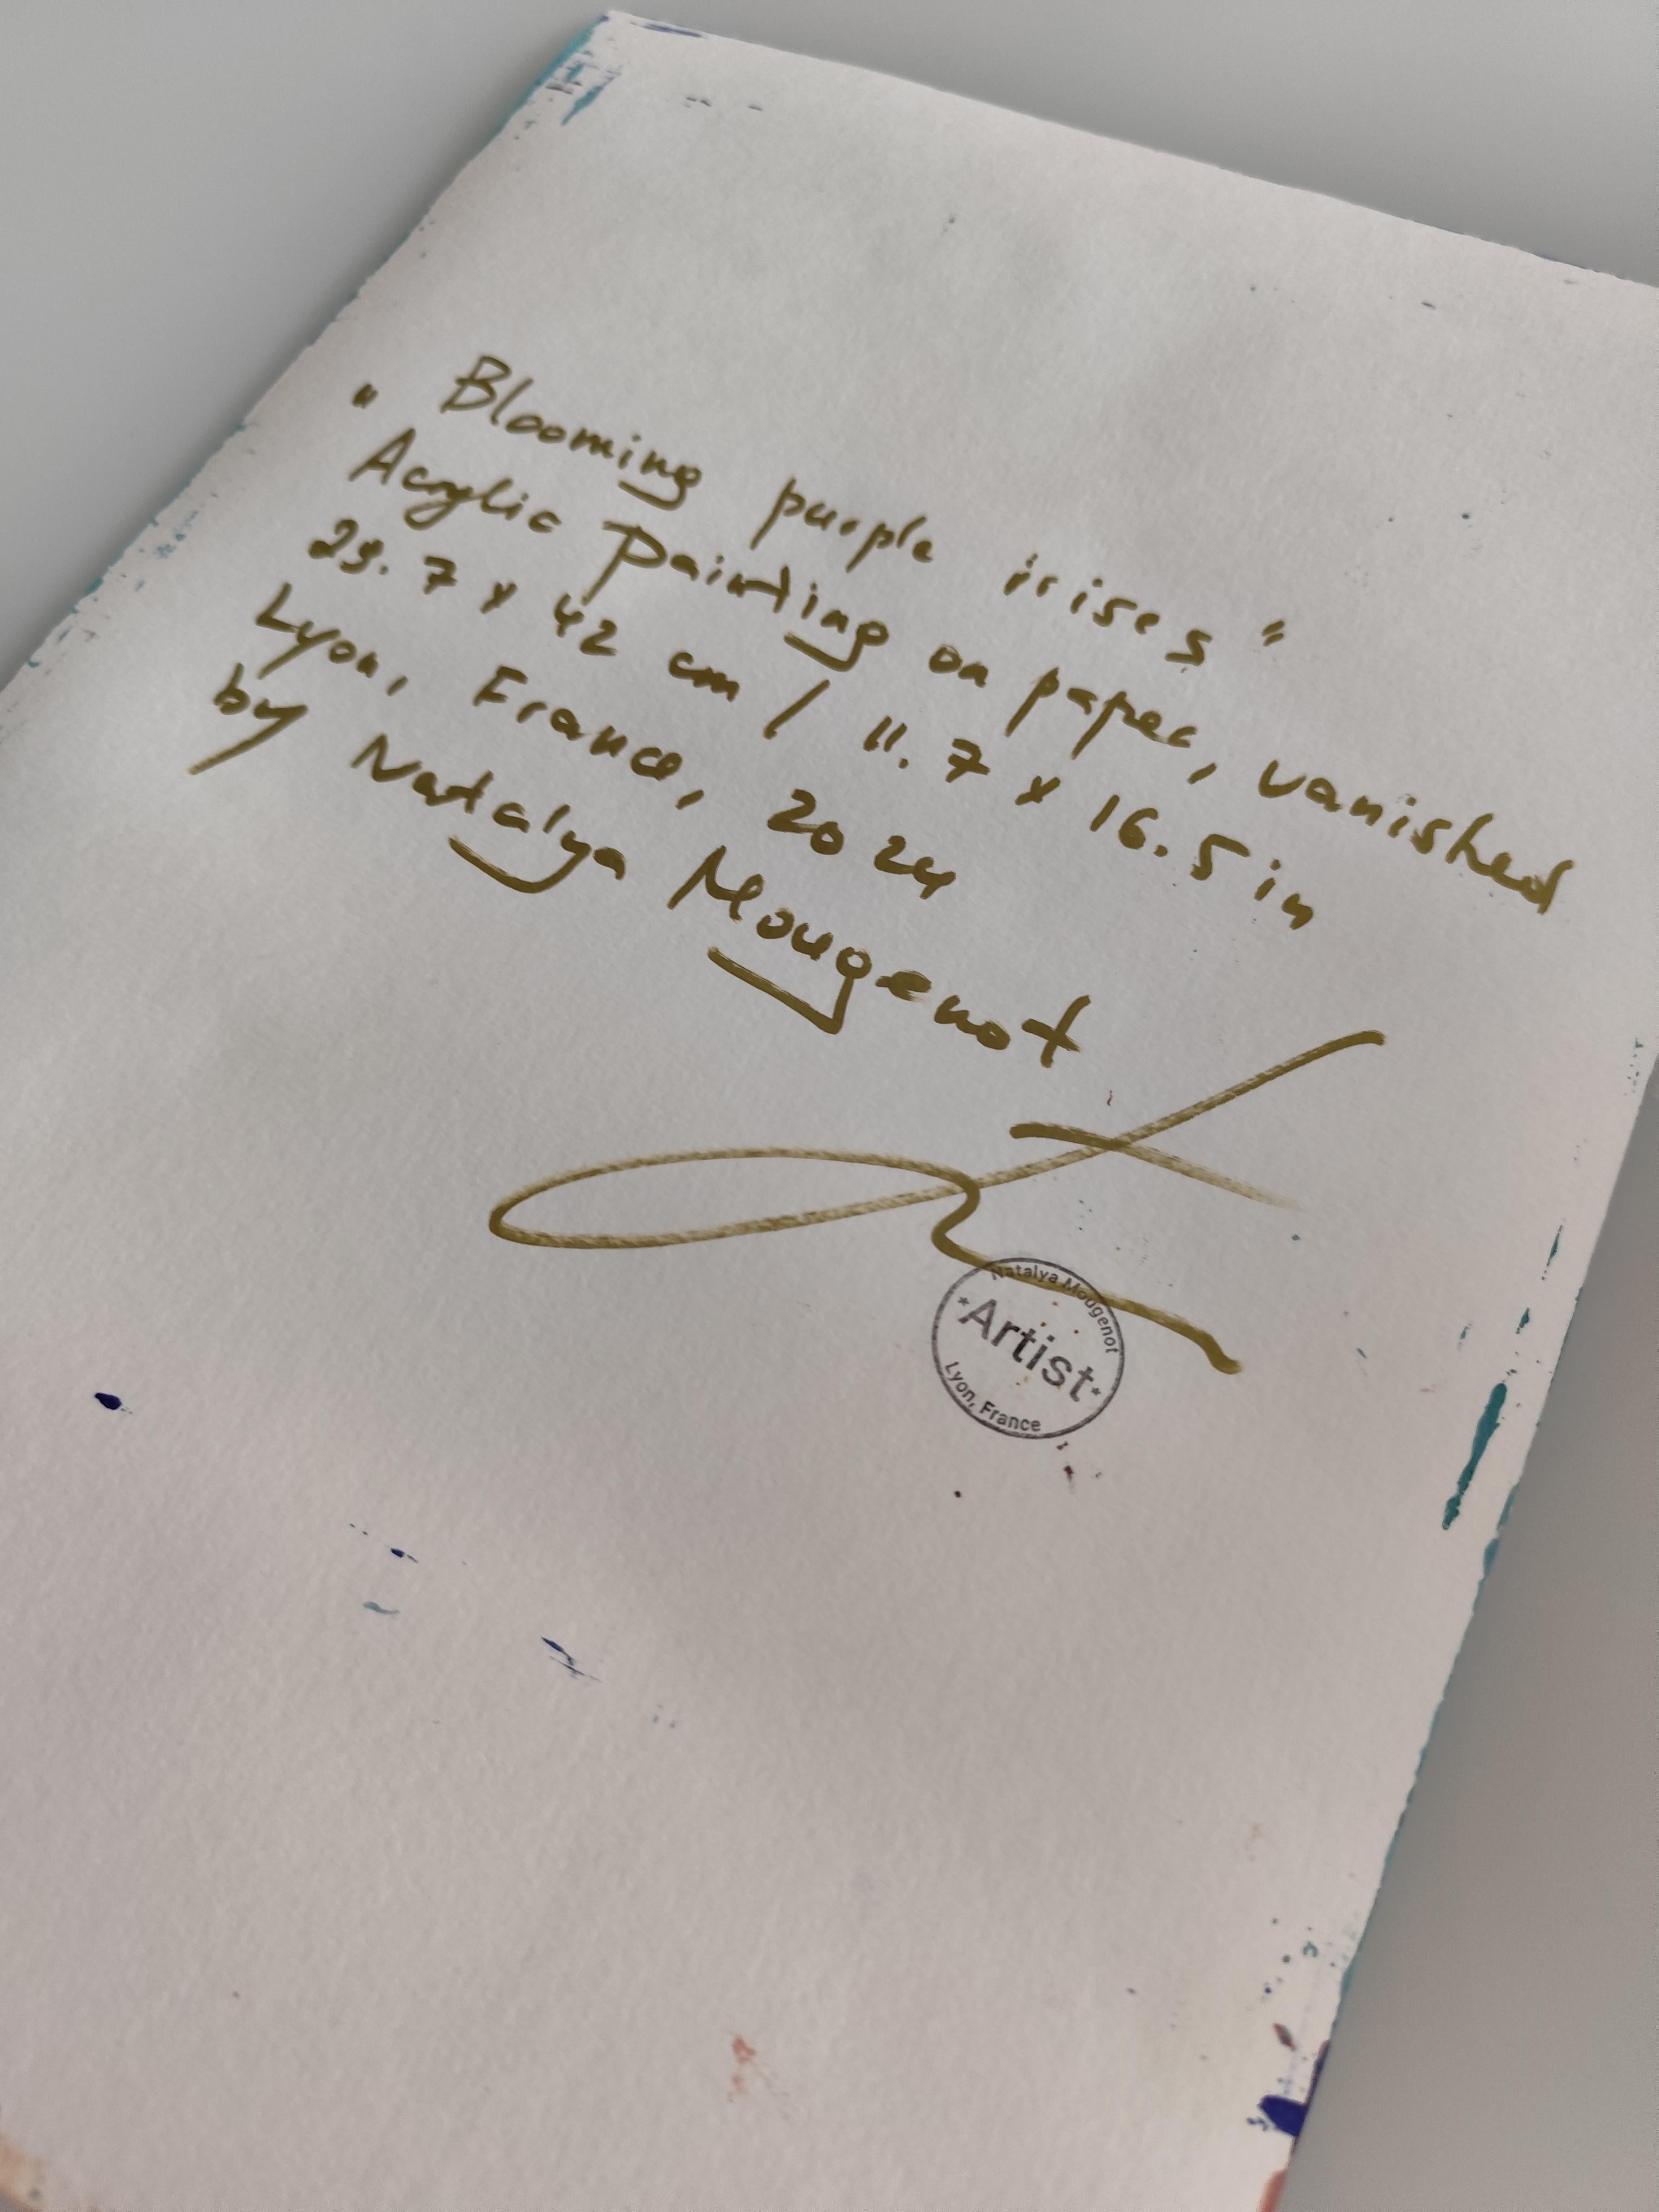 "Blooming purple irises"
Acrylic Painting on paper, vanished
29.7 x 42 cm / 11.7 x 16.5 in
Lyon, France, 2024
by Natalya Mougenot
Natalya Mougenot
*Artist*
Lyon, France